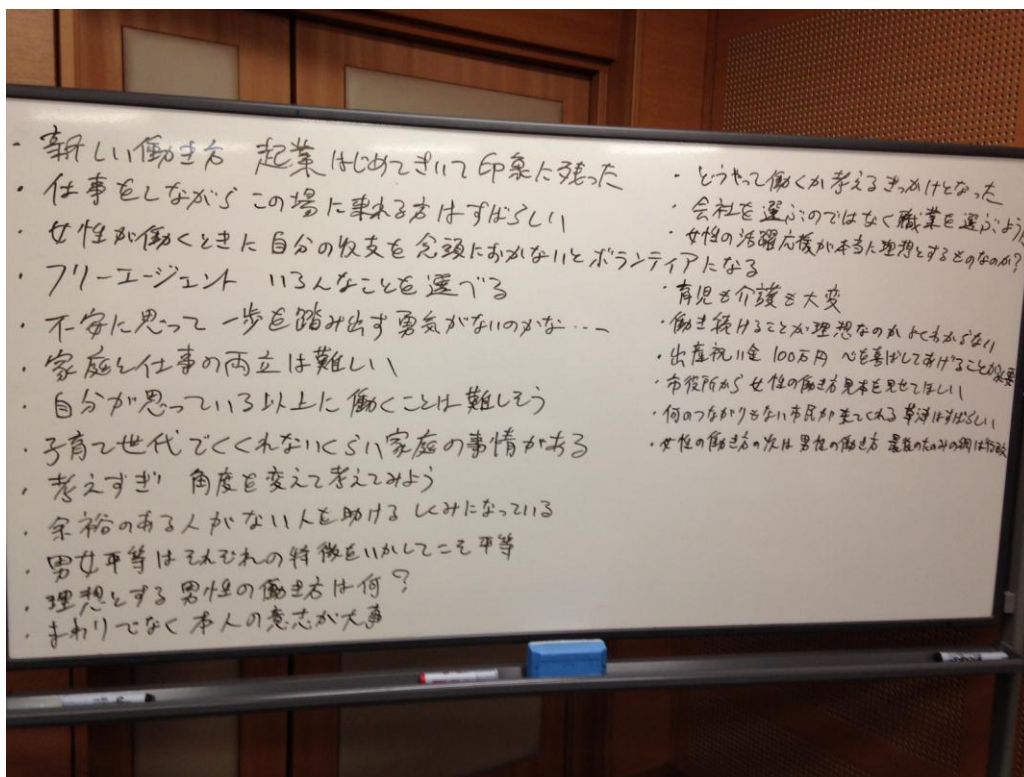 ・新しい働き方 起業 はじめてきいて印象に残った
・仕事をしながら この場に来れる方はすばらしい
・女性が働くときに 自分の収支を念頭におかないとボランティアになる
・フリーエージェント いろんなことを選べる
・不安に思って 一歩を踏み出す勇気がないのかな…
・家庭と仕事の両立は難しい
・自分が思っている以上に働くことは難しそう
・子育て世代でくくれないくらい家庭の事情がある
・考えすぎ 角度を変えて考えてみよう
・余裕のある人がない人を助けるしくみになっている
・男女平等はそれぞれの特徴をいかしてこそ平等
・理想とする男性の働き方は何?
・まわりでなく本人の意志が大事
・どうやって働くか考えるきっかけとなった
・会社を選ぶのではなく職業を選ぶよう
・女性の活躍応援が本当に理想とするものなのか?
・育児も介護も大変
・働き続けることが理想なのかよくわからない
・出産祝い金 100万円 心を喜ばしてあげることが必要
・市役所から女性の働き方見本を見せてほしい
・何のつながりもない市民が来てくれる草津はすばらしい
・女性の働き方の次は男性の働き方 最後のたのみの綱は行政